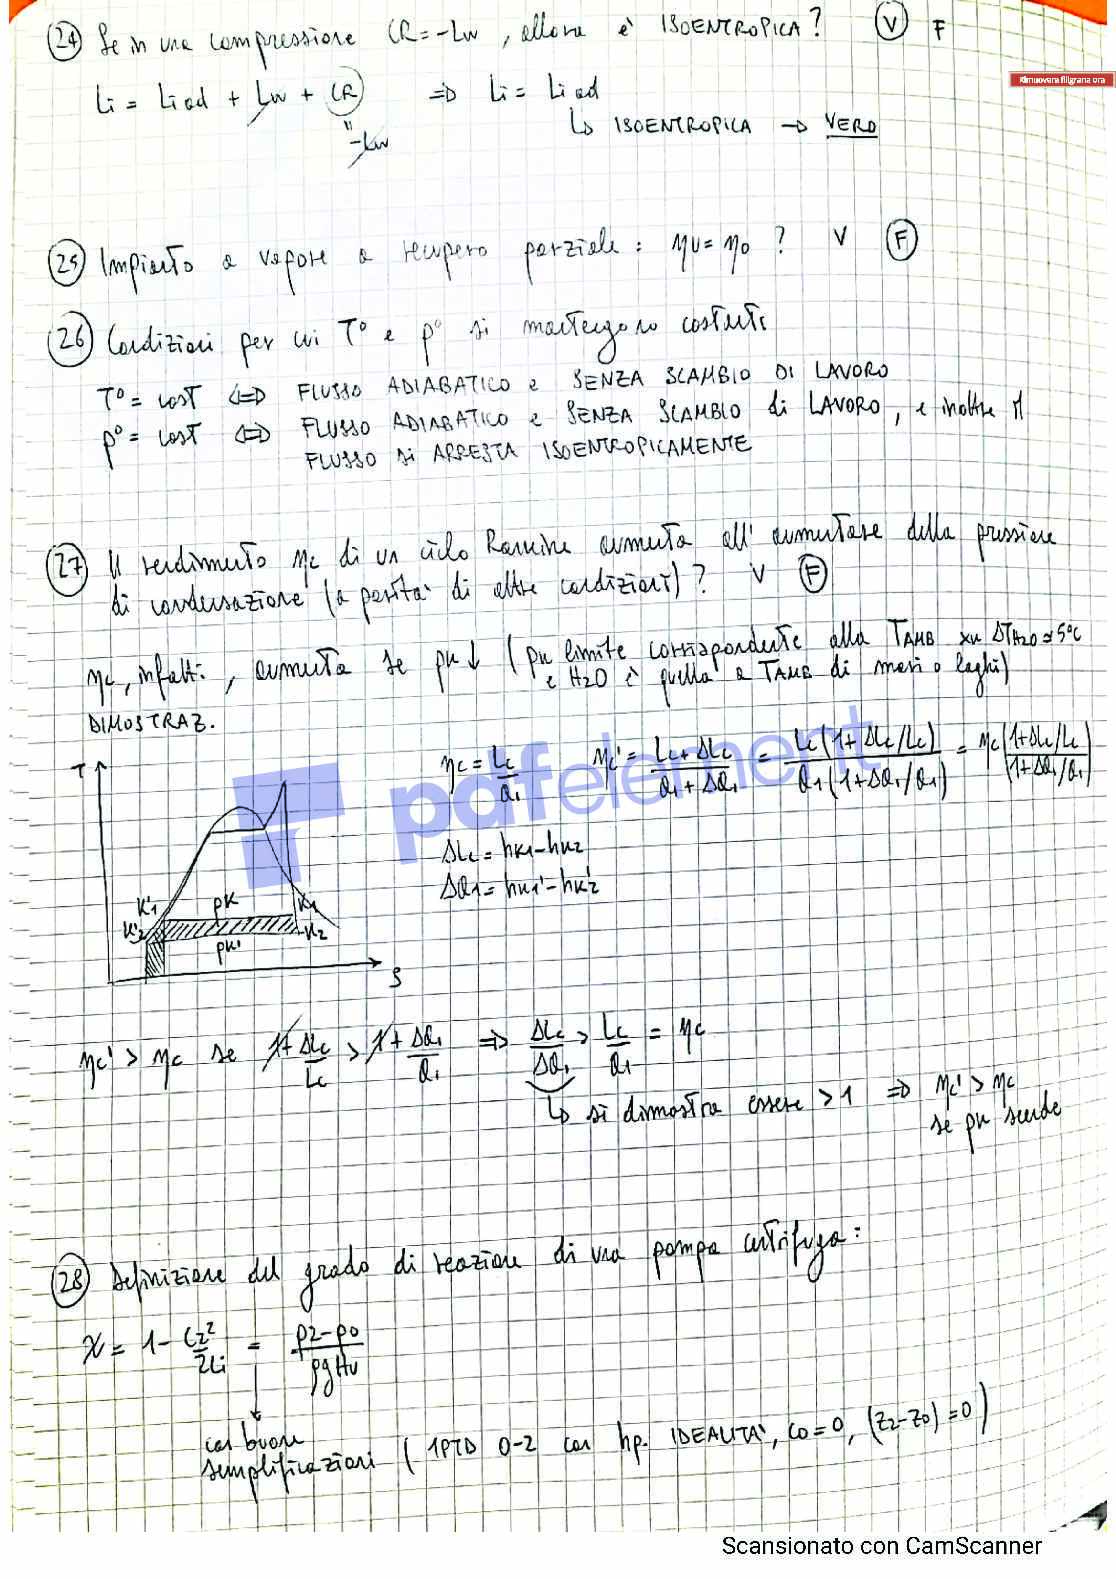 24 Se in una compressione CR = -Lw , allora è ISOENTROPICA ? V F
Rimuovere filigrana ora
Li = Li ad + Lw + CR ⇒ Li = Li ad
" -Lw
↳ ISOENTROPICA → VERO
25 Impianto a vapore a recupero parziale : ηu = ηo ? V F
26 Condizioni per cui T° e p° si mantengono costanti
T° = cost ⇔ FLUSSO ADIABATICO e SENZA SCAMBIO DI LAVORO
p° = cost ⇔ FLUSSO ADIABATICO e SENZA SCAMBIO di LAVORO , e inoltre il
FLUSSO si ARRESTA ISOENTROPICAMENTE
27 Il rendimento ηc di un ciclo Rankine aumenta all' aumentare della pressione
di condensazione (a parità di altre condizioni) ? V F
ηc, infatti , aumenta se pk ↓ ( pk limite corrispondente alla TAMB xu ΔTH2O ≈ 5°C
e H2O è quella a TAMB di mari o laghi)
DIMOSTRAZ.
T
ηc = Lc/Q1 ηc' = (Lc + ΔLc)/(Q1 + ΔQ1) = Lc(1+ΔLc/Lc)/Q1(1+ΔQ1/Q1) = ηc (1+ΔLc/Lc)/(1+ΔQ1/Q1)
pdfelement
ΔLc = hk1 - hk2
ΔQ1 = hk1' - hk2'
K'1 pK K1
K'2 K2
pK'
S
ηc' > ηc se 1 + ΔLc/Lc > 1 + ΔQ1/Q1 ⇒ ΔLc/ΔQ1 > Lc/Q1 = ηc
↳ si dimostra essere > 1 ⇒ ηc' > ηc
se pk scende
28 Definizione del grado di reazione di una pompa centrifuga :
χ = 1 - c2²/2Li = (p2 - p0)/ρgHu
con buone
semplificazioni ( 1PTD 0-2 con hp. IDEALITA', c0 = 0, (z2-z0) = 0 )
Scansionato con CamScanner